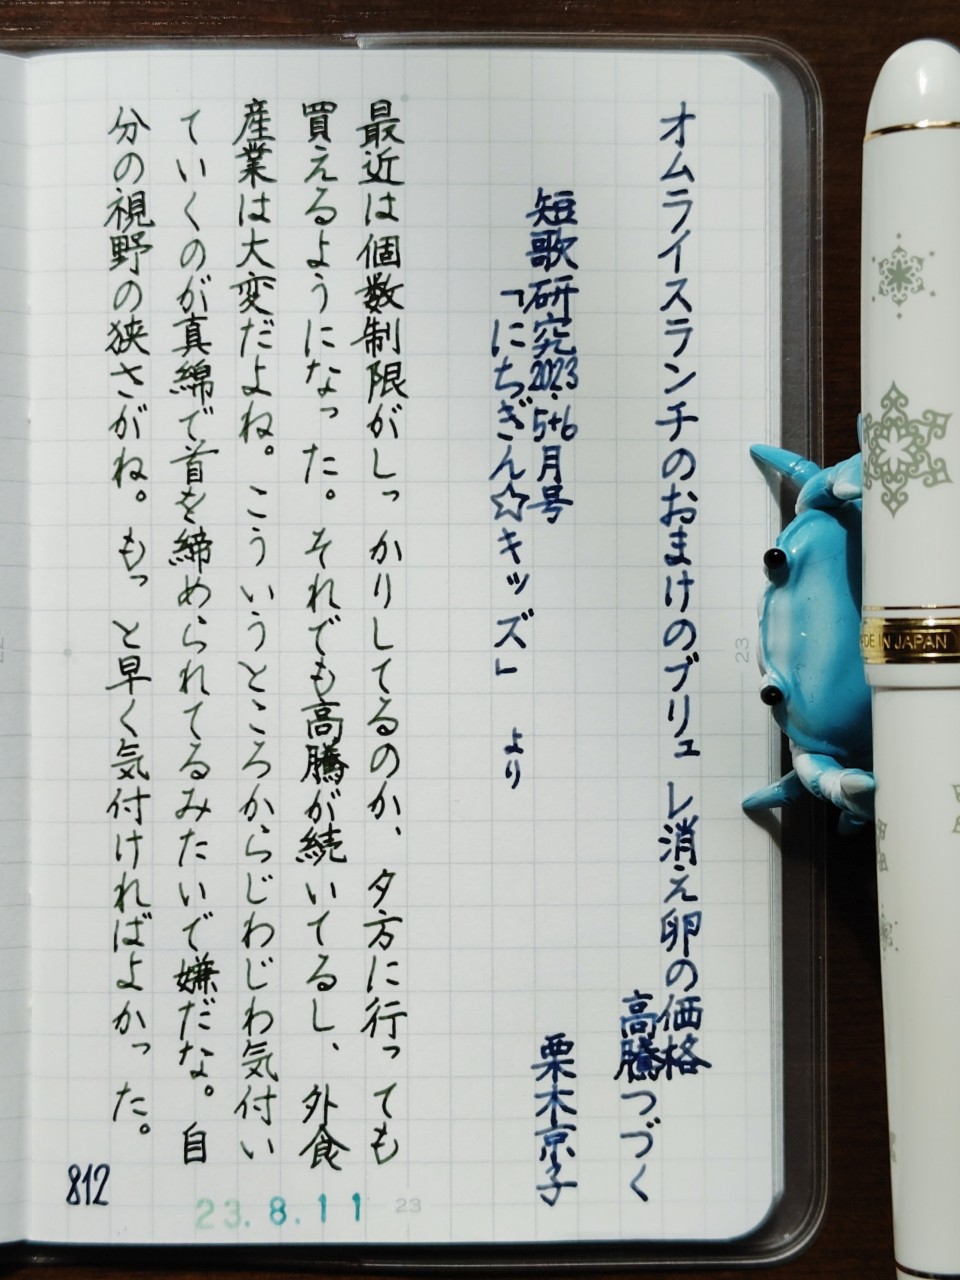 オムライスランチのおまけのブリュレ消え卵の価格
高騰つづく
短歌研究2023.5+6月号
「にちぎん☆キッズ」 より
栗木京子
最近は個数制限がしっかりしてるのか、夕方に行っても
買えるようになった。それでも高騰が続いてるし、外食
産業は大変だよね。こういうところからじわじわ気付い
ていくのが真綿で首を締められてるみたいで嫌だな。自
分の視野の狭さがね。もっと早く気付ければよかった。
812
23.8.11
23
23
22
MADE IN JAPAN